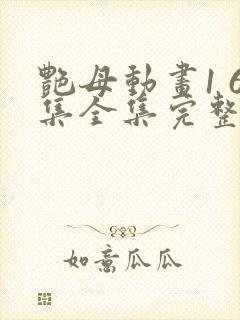 艷母動畫1 6
集全集完整
如意瓜瓜